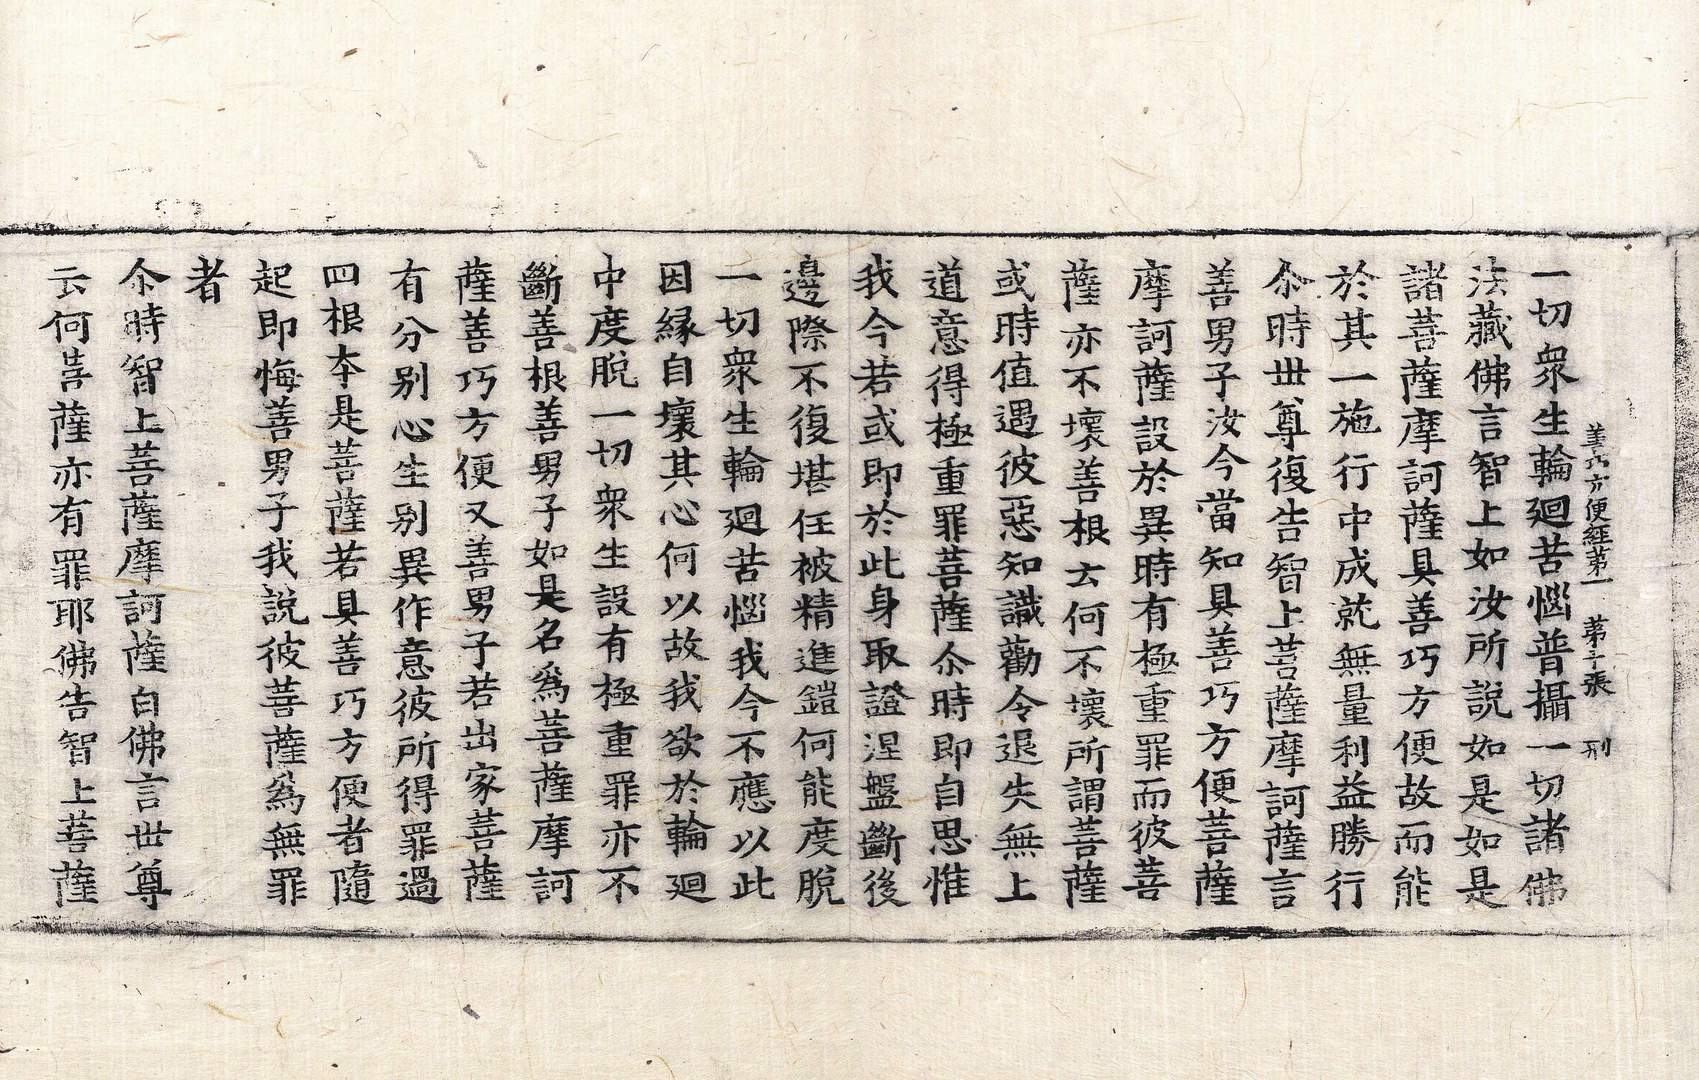 善巧方便經第一 第十張 刑
一切衆生輪廻苦惱普攝一切諸佛
法藏佛言智上如汝所說如是如是
諸菩薩摩訶薩具善巧方便故而能
於其一施行中成就無量利益勝行
尒時世尊復告智上菩薩摩訶薩言
善男子汝今當知具善巧方便菩薩
摩訶薩設於異時有極重罪而彼菩
薩亦不壞善根云何不壞所謂菩薩
或時值遇彼惡知識勸令退失無上
道意得極重罪菩薩尒時即自思惟
我今若或即於此身取證涅盤斷後
邊際不復堪任被精進鎧何能度脫
一切衆生輪廻苦惱我今不應以此
因緣自壞其心何以故我欲於輪廻
中度脫一切衆生設有極重罪亦不
斷善根善男子如是名爲菩薩摩訶
薩善巧方便又善男子若出家菩薩
有分別心生別異作意彼所得罪過
四根本是菩薩若具善巧方便者隨
起即悔善男子我說彼菩薩爲無罪
者
尒時智上菩薩摩訶薩白佛言世尊
云何菩薩亦有罪耶佛告智上菩薩